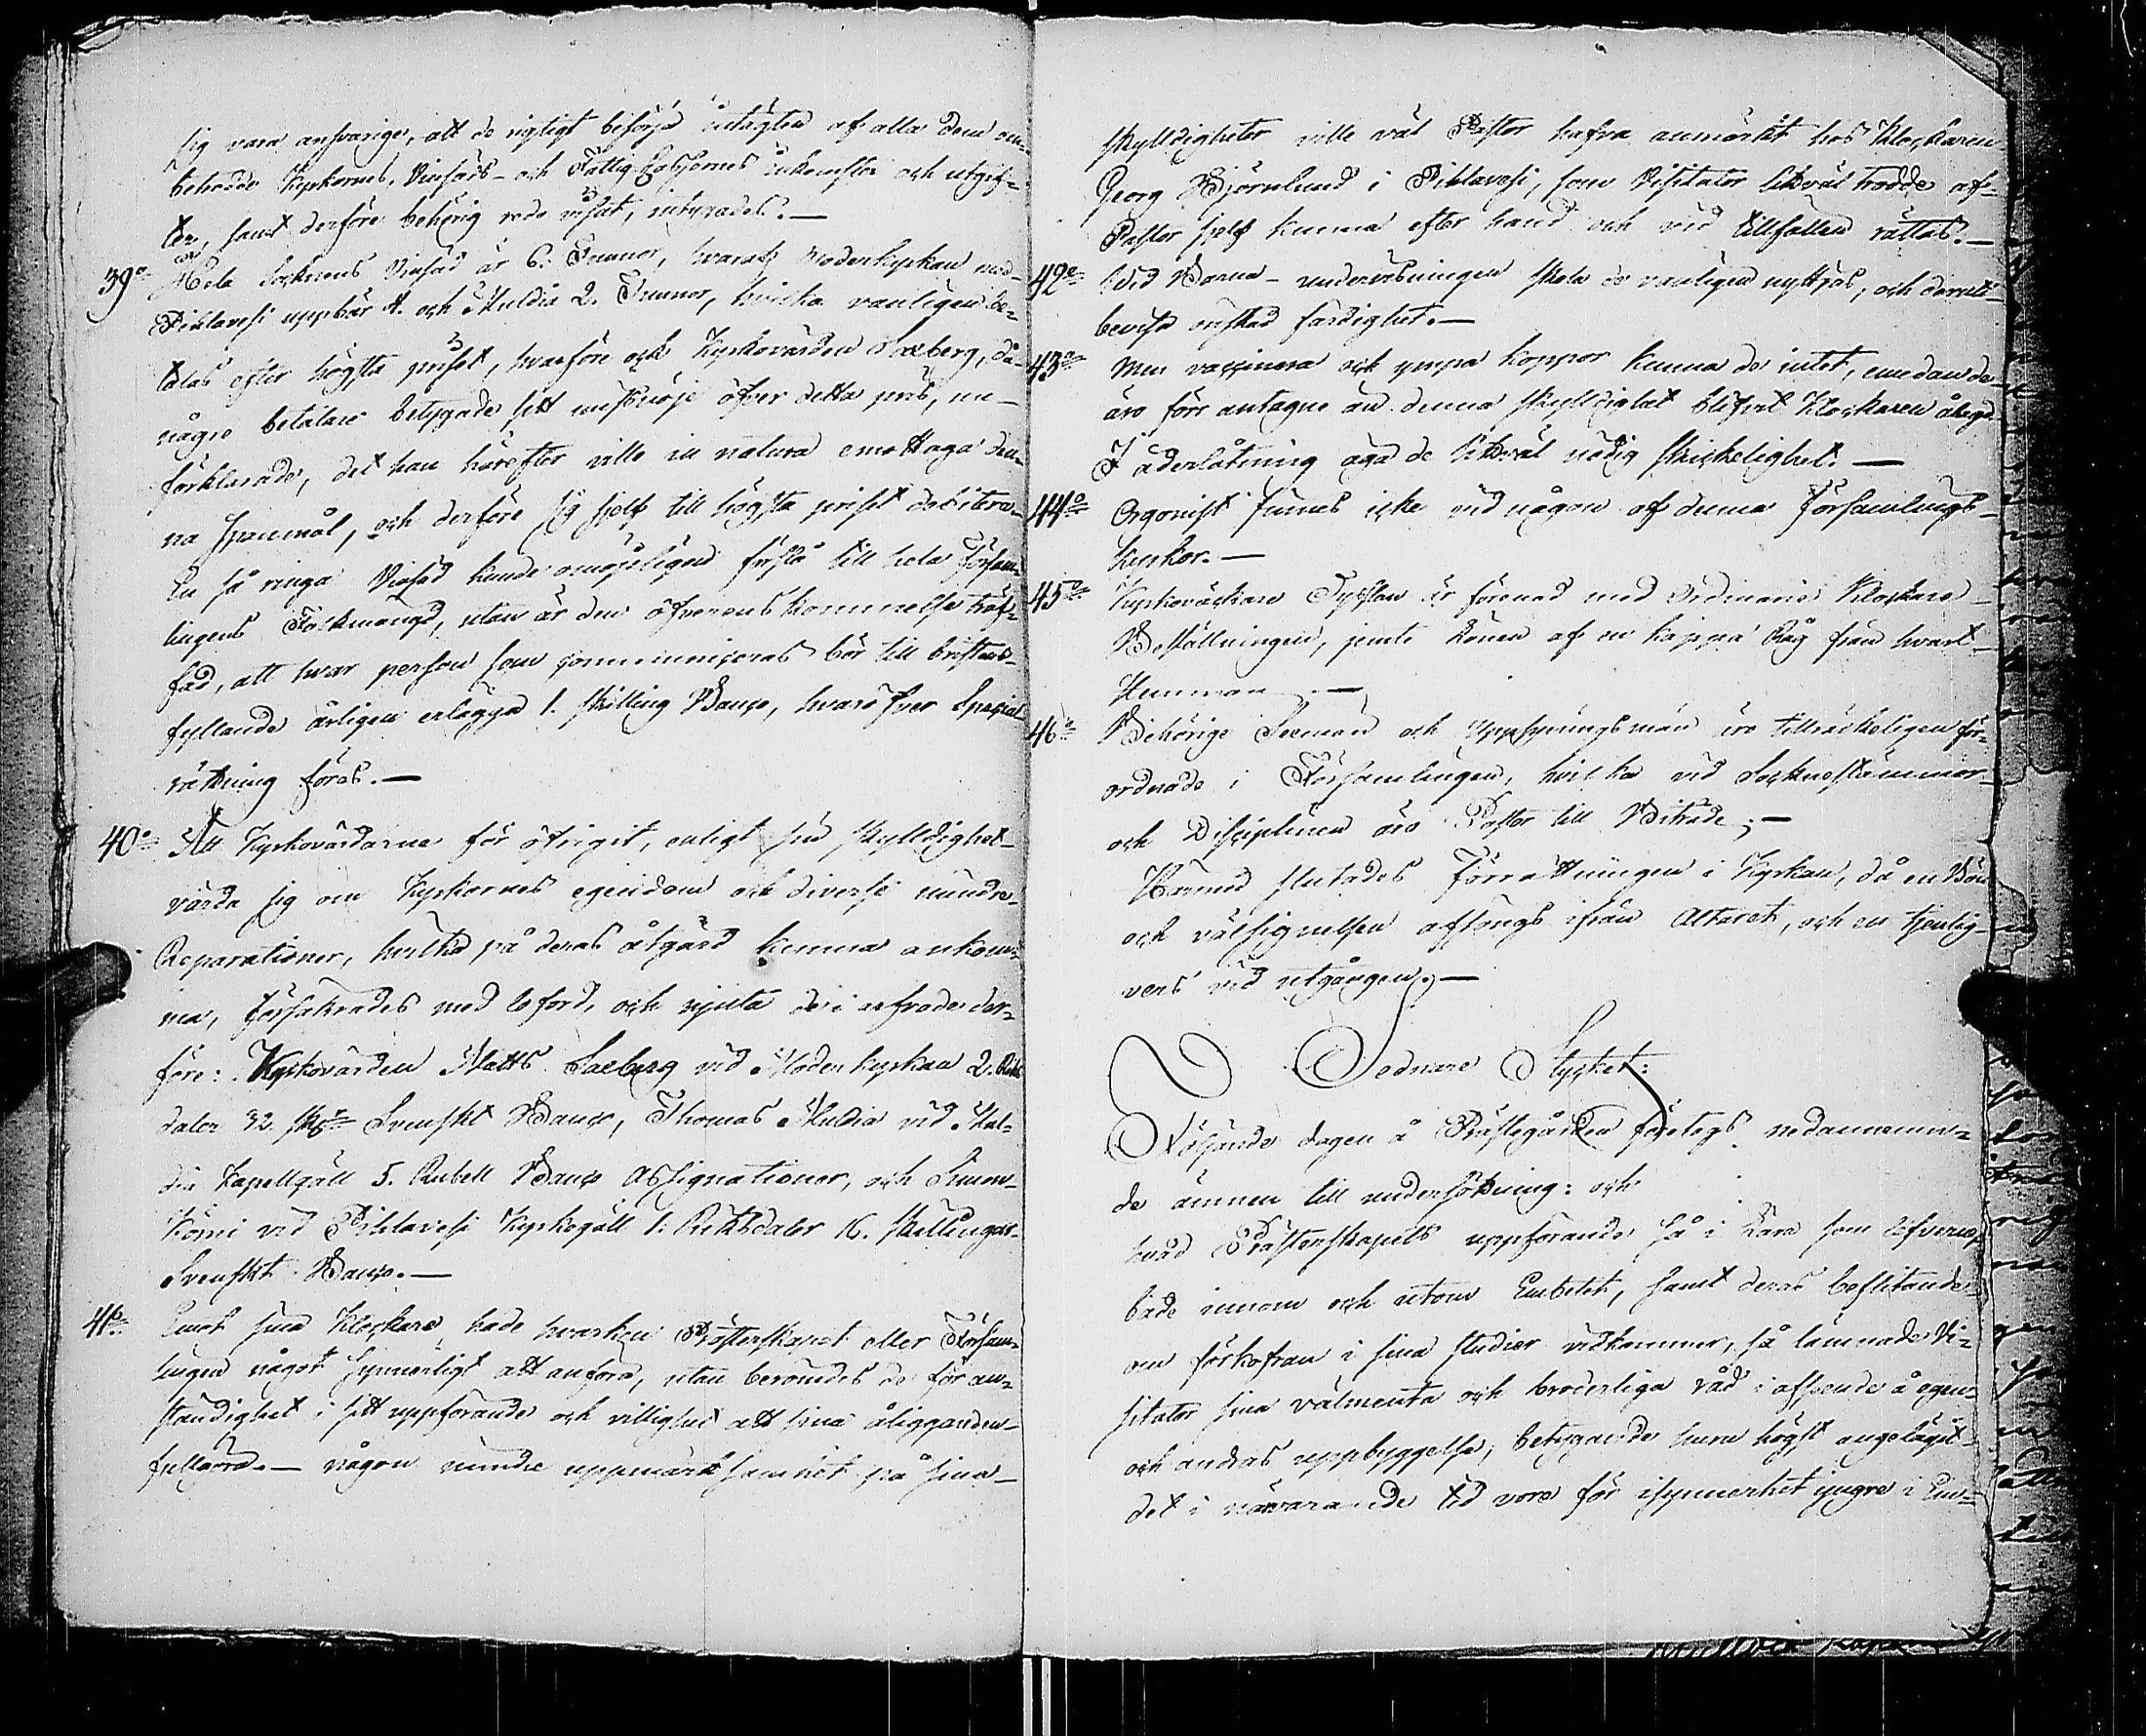 sig vara ansvarige, att de rigtigt besörja intägten af alla dem om-
betrodde Kyrkornes, Vinsäds- och Fattig Cassornes inkomster och utgif-
ter, samt derföre behörig redo visat, intygades. —
39o Hela Socknens Vinsäd är 6. Tunnor, hvaraf Moderkyrkan
Pihlavesi uppbär 4. och Multia 2. Tunnor, hvilka vanligen be-
talas efter högsta priset, hvarföre ock Kyrkovärden Saxberg, då
någre betalare betygade sitt missnöje öfver detta pris, nu
förklarade, det han härefter ville in natura emottaga den-
na spanmål, och derföre sig sjelf till högsta priset debitera.
En så ringa Vinsäd kunde omöjeligen förslå till hela Försam-
lingens Folkmängd, utan är den öfverenskommelse träf-
fad, att hvar person som communiceras bör till bristens
fyllande årligen erlägga 1. skilling Banco, hvaröfver Special
räkning föres. —
40o Att Kyrkovärdarne för öfrigit, enligt sin skylldighet
vårda sig om Kyrkornes egendom och diverse mindre
Reparationer, hvilka på deras åtgärd kunna ankom-
ma, försäkrades med loford, och njuta de i arfvode der-
före: Kyrkovärden Matts Saxberg vid Moderkyrkan 2. Riks
daler 32. sk. Svenskt Banco, Thomas Multia vid Mul-
tia Kapellgäll 5. Rubell Banco Assignationer, och Simon
 vid Pihlavesi Kyrkogäll 1. Riksdaler 16. skillingar
Svenskt Banco. —
41o Emot sina Klockare hade hvarken Prästerskapet eller Församl-
lingen något synnerligt att anföra, utan berömdes de för an-
ständighet i sitt uppförande och villighet att sina åligganden
fullgöra. — någon mindre uppmärksamhet på sina
skylldigheter ville väl Pastor hafva anmärkt hos Klockaren
Georg Björnlund i Pihlavesi, som Visitator likväl trodde af
Pastor sjelf kunna efter hand och vid tillfällen rättas. —
42o Vid Barna-undervisningen skola de vanligen nyttjas, och deruti
bevisa önskad färdighet. —
43o Men vaccinera och ympa koppor kunna de intet, emedan de
äro förr antagne än denna skylldighet blifvit Klockaren ålagd.
I åderlåtning äga de likväl nödig skickelighet. —
44o Organist finnes icke vid någon af denna Församlings
kyrkor. —
45o Kyrkoväckare Sysslan är förenad med Ordinarie Klockare
Beställningen, jemte Lönen af en kappa Råg från hvart
Hemman. —
46o Behörige Sexmän och Uppsyningsmän äro tillräckeligen för-
ordnade i Församlingen, hvilka vid Socknestämmor
och Disciplinen äro Pastor till Biträde; —
Härmed slutades Förrättningen i Kyrkan, då en Bön
och välsignelsen afsöngs ifrån Altaret, och en tjenlig
vers vid utgången. —
Sednare Stycket:
Följande dagen å Prästegården företogs nedannemn-
de ämnen till undersökning: och
hvad Prästerskapets uppförande så i Lära som Lefverne,
både innom och utom Embetet, samt deras beflitande
om förkofran i sina studier vidkommer, så lämnade Vi-
sitator sina välmenta och broderliga råd i afseende å egen
och andras uppbyggelse, betygande huru högst angeläget
det i närvarande tid vore för isynnerhet yngre i Em-